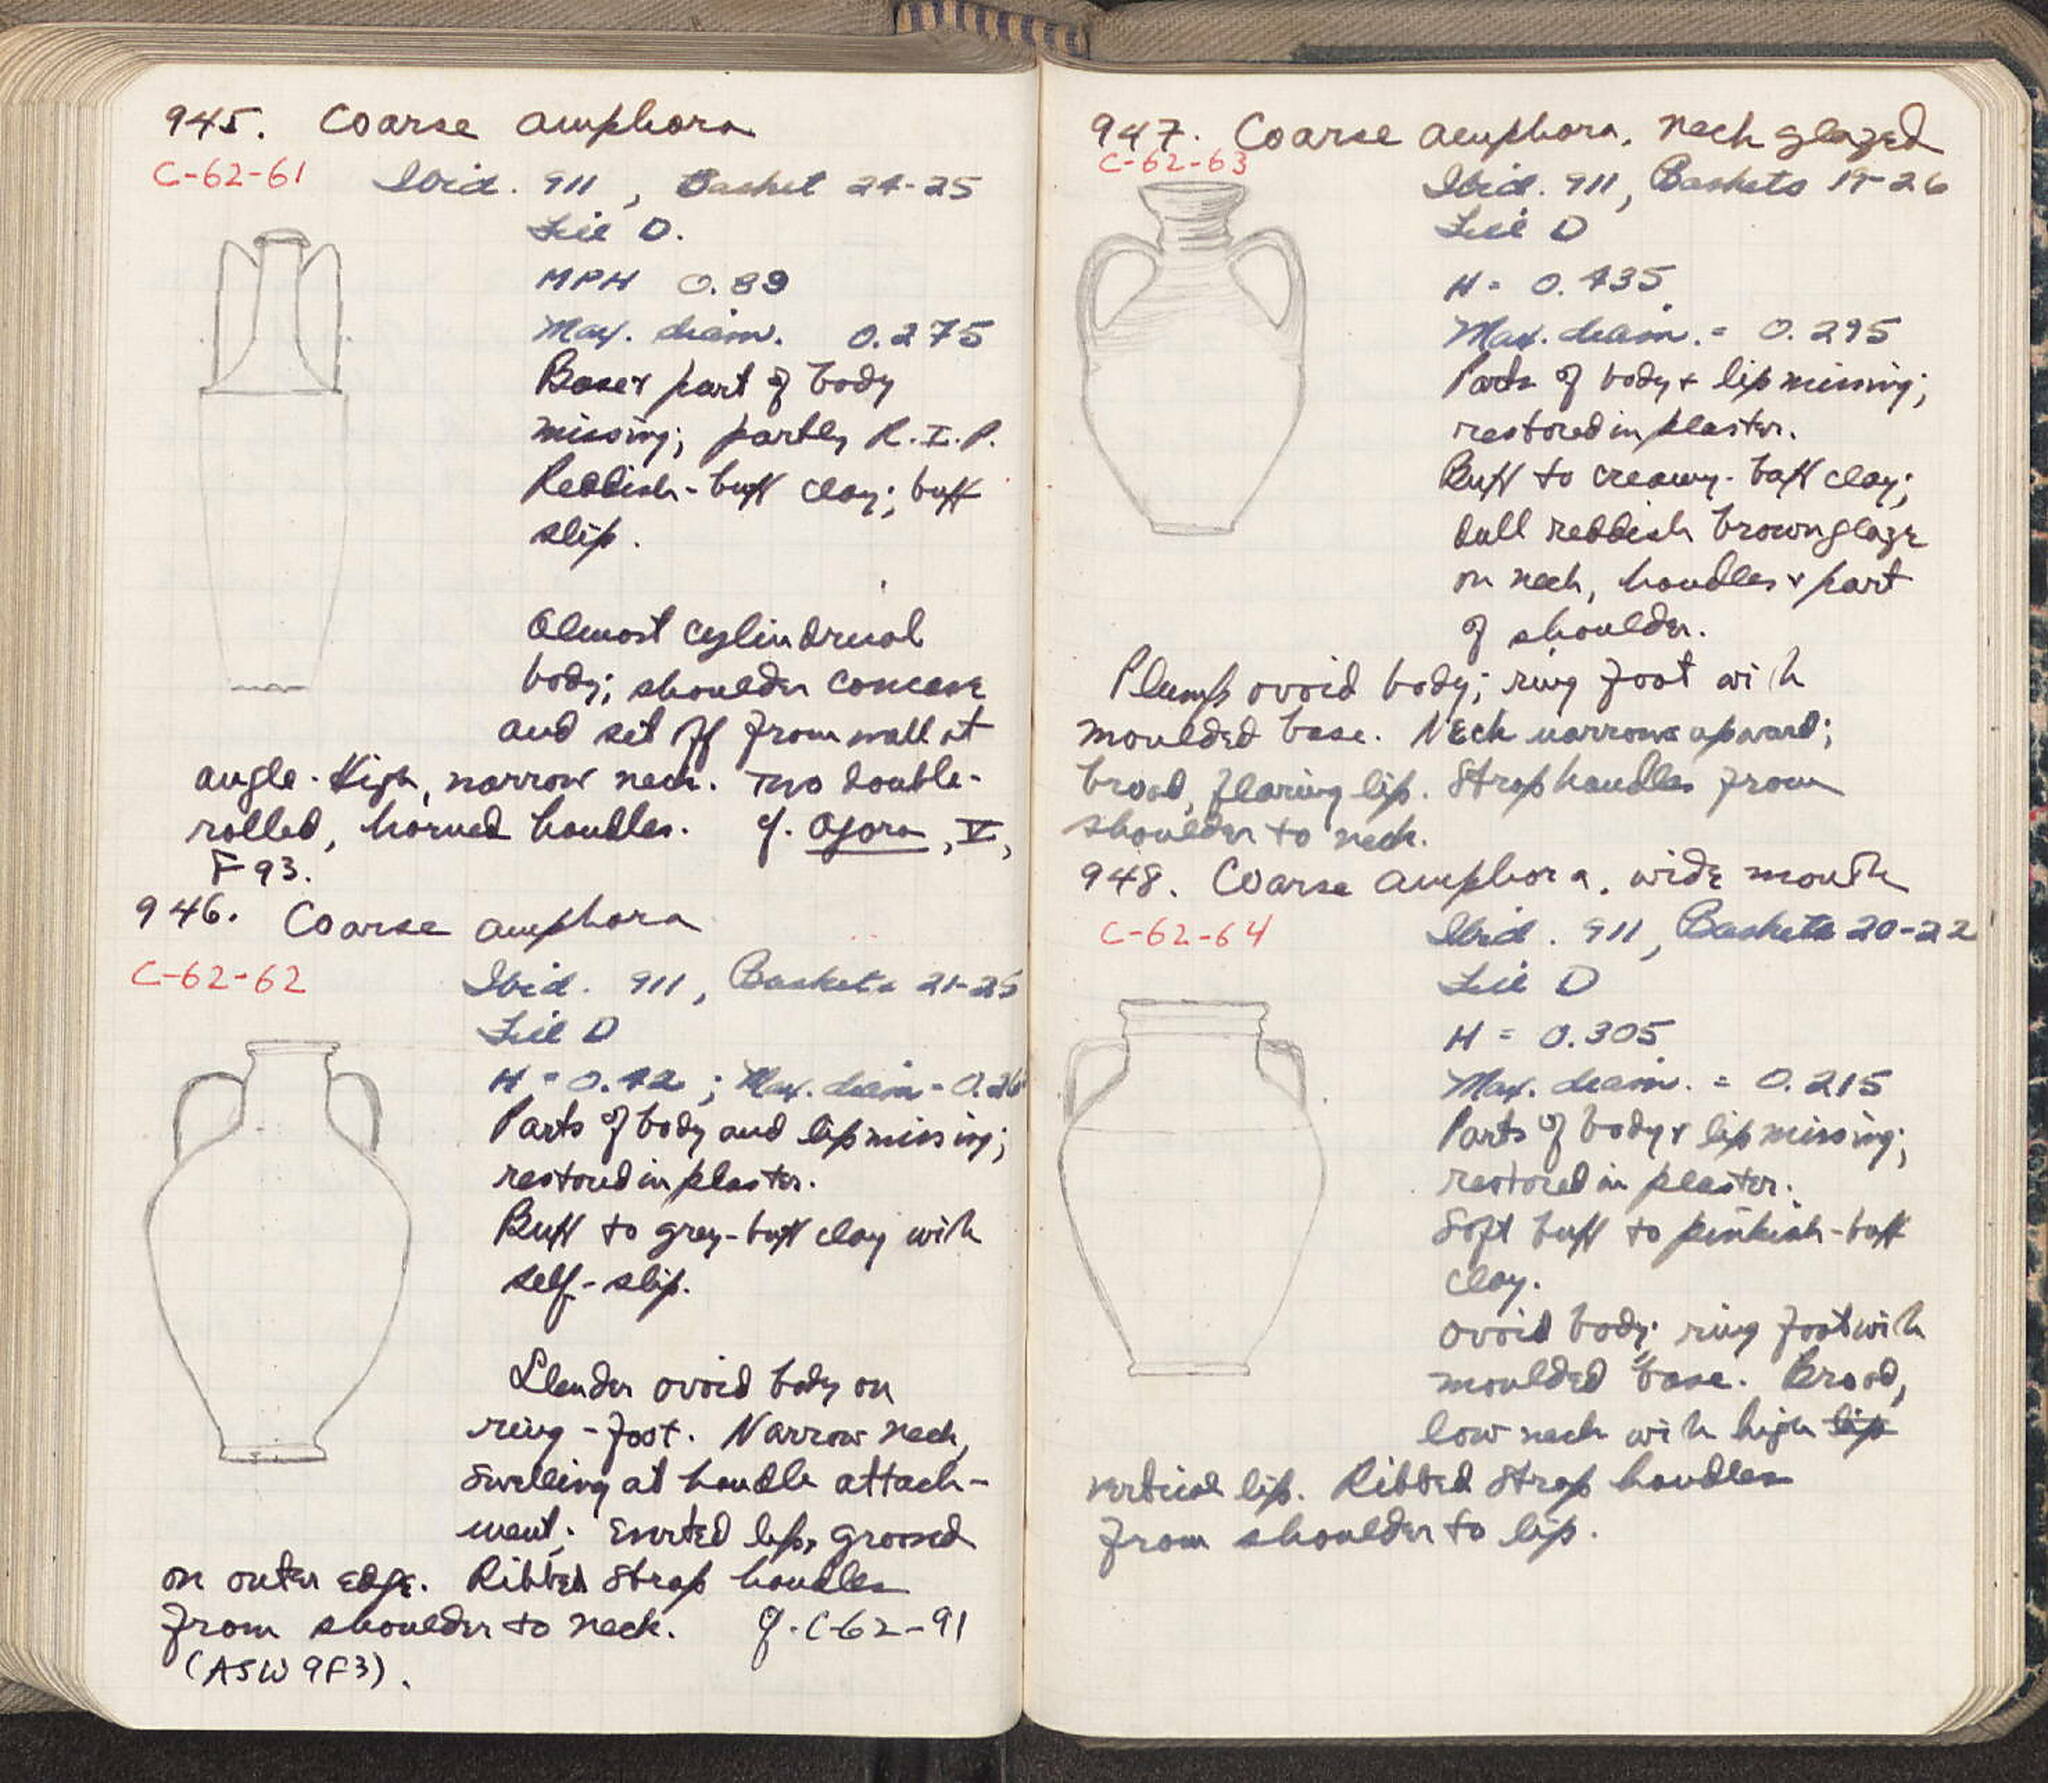 945. Coarse amphora
C-62-61 Ibid. 911, Basket 24-25
File D.
MPH 0.89
Max. diam. 0.275
Base & part of body
missing; partly R.I.P.
Reddish-buff clay; buff
slip.
Almost cylindrical
body; shoulder concave
and set off from wall at
angle. High, narrow neck. Two double-
rolled, horned handles. Cf. Agora, V,
F93.
946. Coarse amphora
C-62-62 Ibid. 911, Baskets 21-25
File D
H = 0.42; Max. diam = 0.26
Parts of body and lip missing;
restored in plaster.
Buff to grey-buff clay with
self-slip.
Slender ovoid body on
ring-foot. Narrow neck,
swelling at handle attach-
ment; Everted lip, grooved
on outer edge. Ribbed strap handles
from shoulder to neck. Cf. C-62-91
(ASW 9F3).
947. Coarse amphora, neck glazed
C-62-63
Ibid. 911, Baskets 19-26
File D
H = 0.435
Max. diam. = 0.295
Parts of body & lip missing;
restored in plaster.
Buff to creamy-buff clay;
dull reddish brown glaze
on neck, handles & part
of shoulder.
Plump ovoid body; ring foot with
moulded base. Neck narrows upward;
broad, flaring lip. Strap handles from
shoulder to neck.
948. Coarse amphora, wide mouth
C-62-64 Ibid. 911, Baskets 20-22
File D
H = 0.305
Max. diam. = 0.215
Parts of body & lip missing;
restored in plaster.
Soft buff to pinkish-buff
clay.
Ovoid body; ring foot with
moulded base. Broad,
low neck with high lip
vertical lip. Ribbed strap handles
from shoulder to lip.